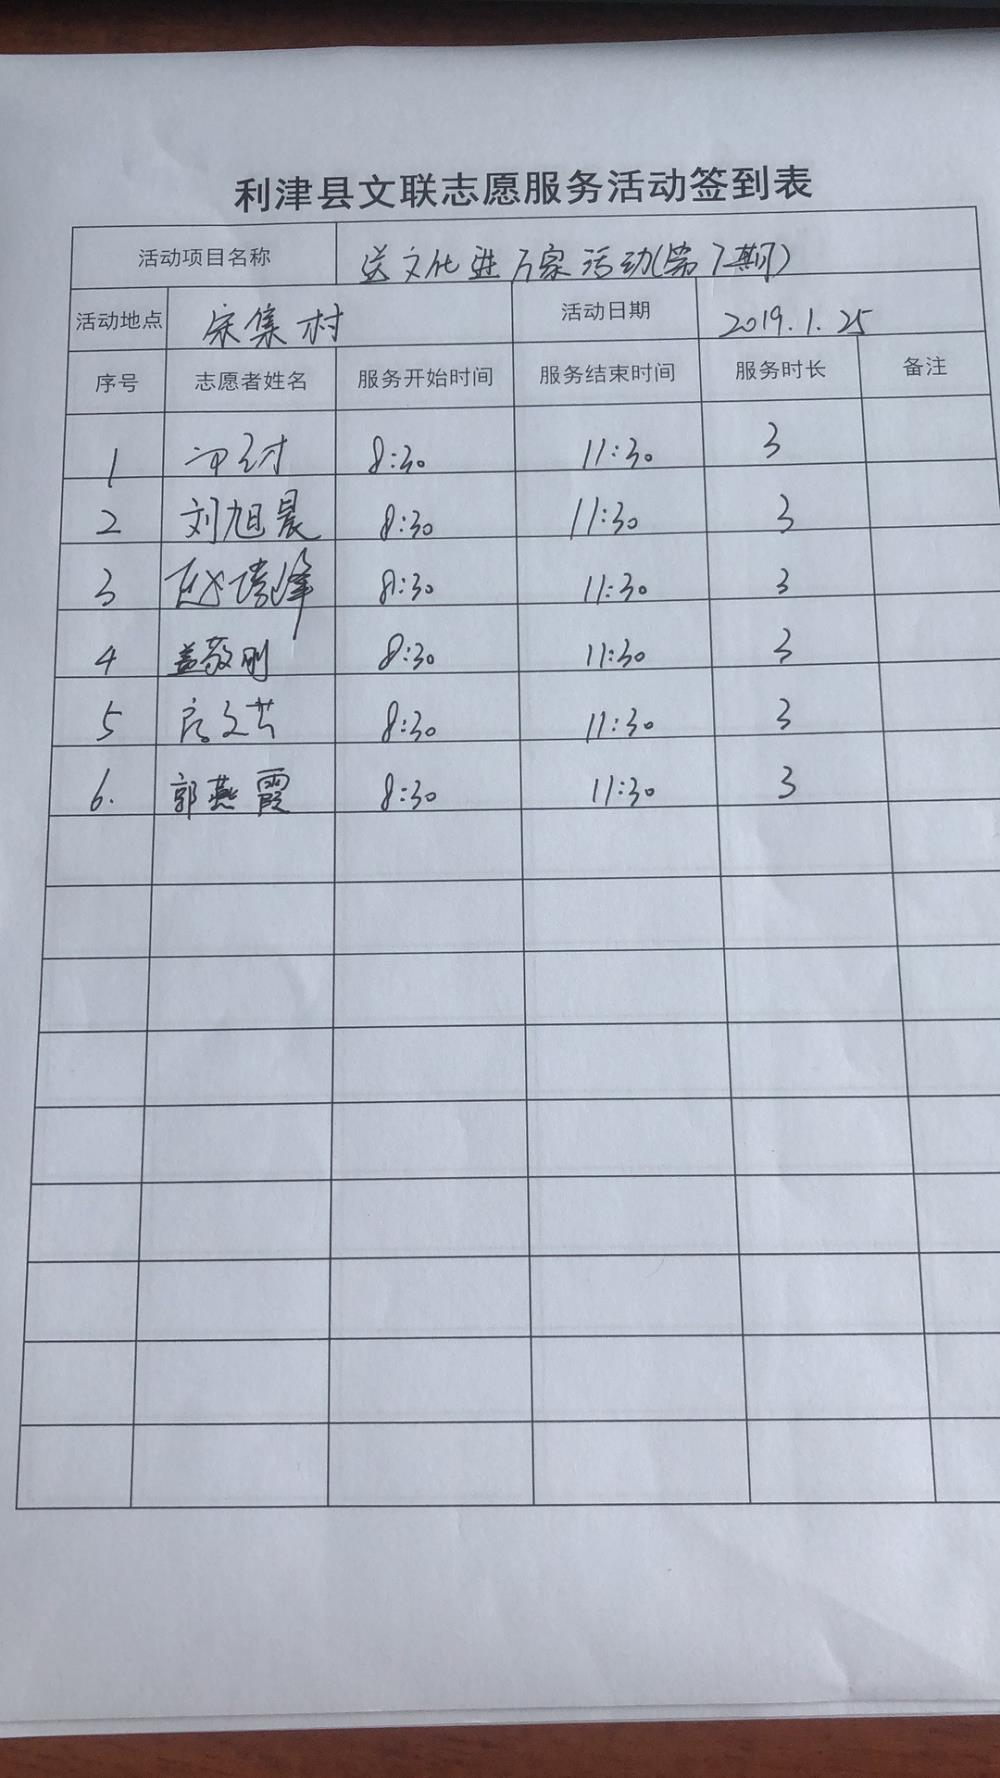 利津县文联志愿服务活动签到表
活动项目名称 送文化进万家活动(第7期)
活动地点 宋集村 活动日期 2019.1.25
序号 志愿者姓名 服务开始时间 服务结束时间 服务时长 备注
1 8:30 11:30 3
2 刘旭晨 8:30 11:30 3
3 赵 峰 8:30 11:30 3
4 盖敬刚 8:30 11:30 3
5 8:30 11:30 3
6. 郭燕霞 8:30 11:30 3